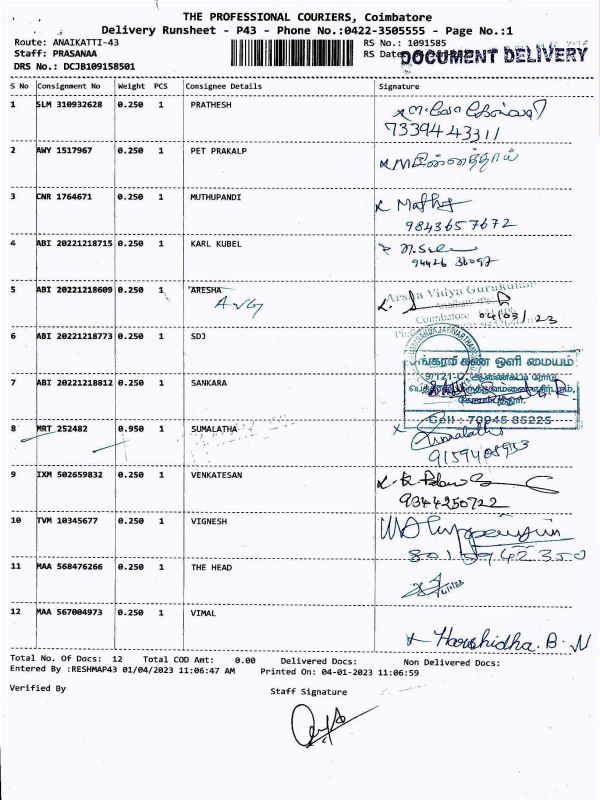 THE PROFESSIONAL COURIERS, Coimbatore
Delivery Runsheet - P43 - Phone No.:0422-3505555 - Page No.:1
Route: ANAIKATTI-43
RS No.: 1091585
Staff: PRASANAA
RS Date
DOCUMENT DELIVERY
DRS No.: DCJB109158501
S No Consignment No Weight PCS Consignee Details Signature
1 SLM 310932628 0.250 1 PRATHESH
7339443311
2 AWY 1517967 0.250 1 PET PRAKALP
3 CNR 1764671 0.250 1 MUTHUPANDI
9843657672
4 ABI 20221218715 0.250 1 KARL KUBEL
5 ABI 20221218609 0.250 1 ARESHA
AVG
Arsha Vidya Gurukulam
Coimbatore
04/03/23
6 ABI 20221218773 0.250 1 SDJ
கண் ஒளி மையம்
7 ABI 20221218812 0.250 1 SANKARA
Cell : 70945 85225
8 MRT 252482 0.950 1 SUMALATHA
Sumalatha
9 IXM 502659832 0.250 1 VENKATESAN
9344250722
10 TVM 10345677 0.250 1 VIGNESH
11 MAA 568476266 0.250 1 THE HEAD
12 MAA 567004973 0.250 1 VIMAL
Harshidha. B. N
Total No. Of Docs: 12 Total COD Amt: 0.00 Delivered Docs: Non Delivered Docs:
Entered By :RESHMAP43 01/04/2023 11:06:47 AM Printed On: 04-01-2023 11:06:59
Verified By
Staff Signature